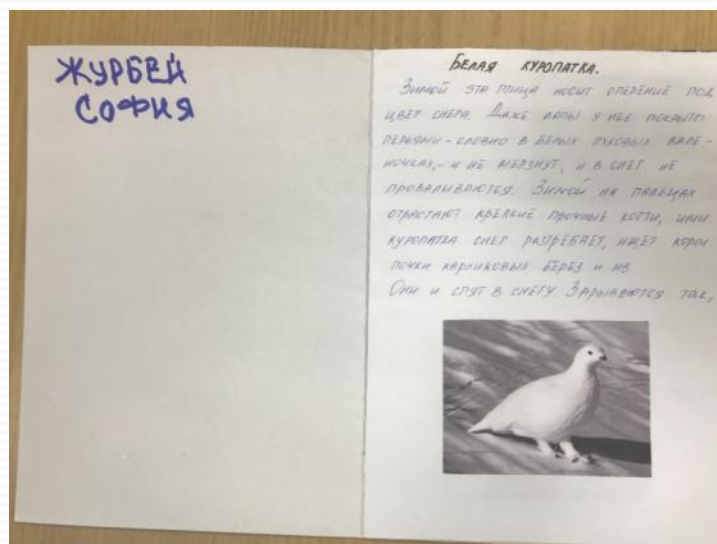 ЖУРБЕЙ
СОФИЯ
БЕЛАЯ КУРОПАТКА.
Зимой эта птица носит оперение под
цвет снега. Даже лапы у неё покрыты
перьями – словно в белых пуховых вале-
ночках, – и не мёрзнут, и в снег не
проваливаются. Зимой на пальцах
отрастают крепкие прочные когти, ими
куропатка снег разгребает, ищет корм
почки карликовых берёз и ив.
Они и спят в снегу. Зарываются так,